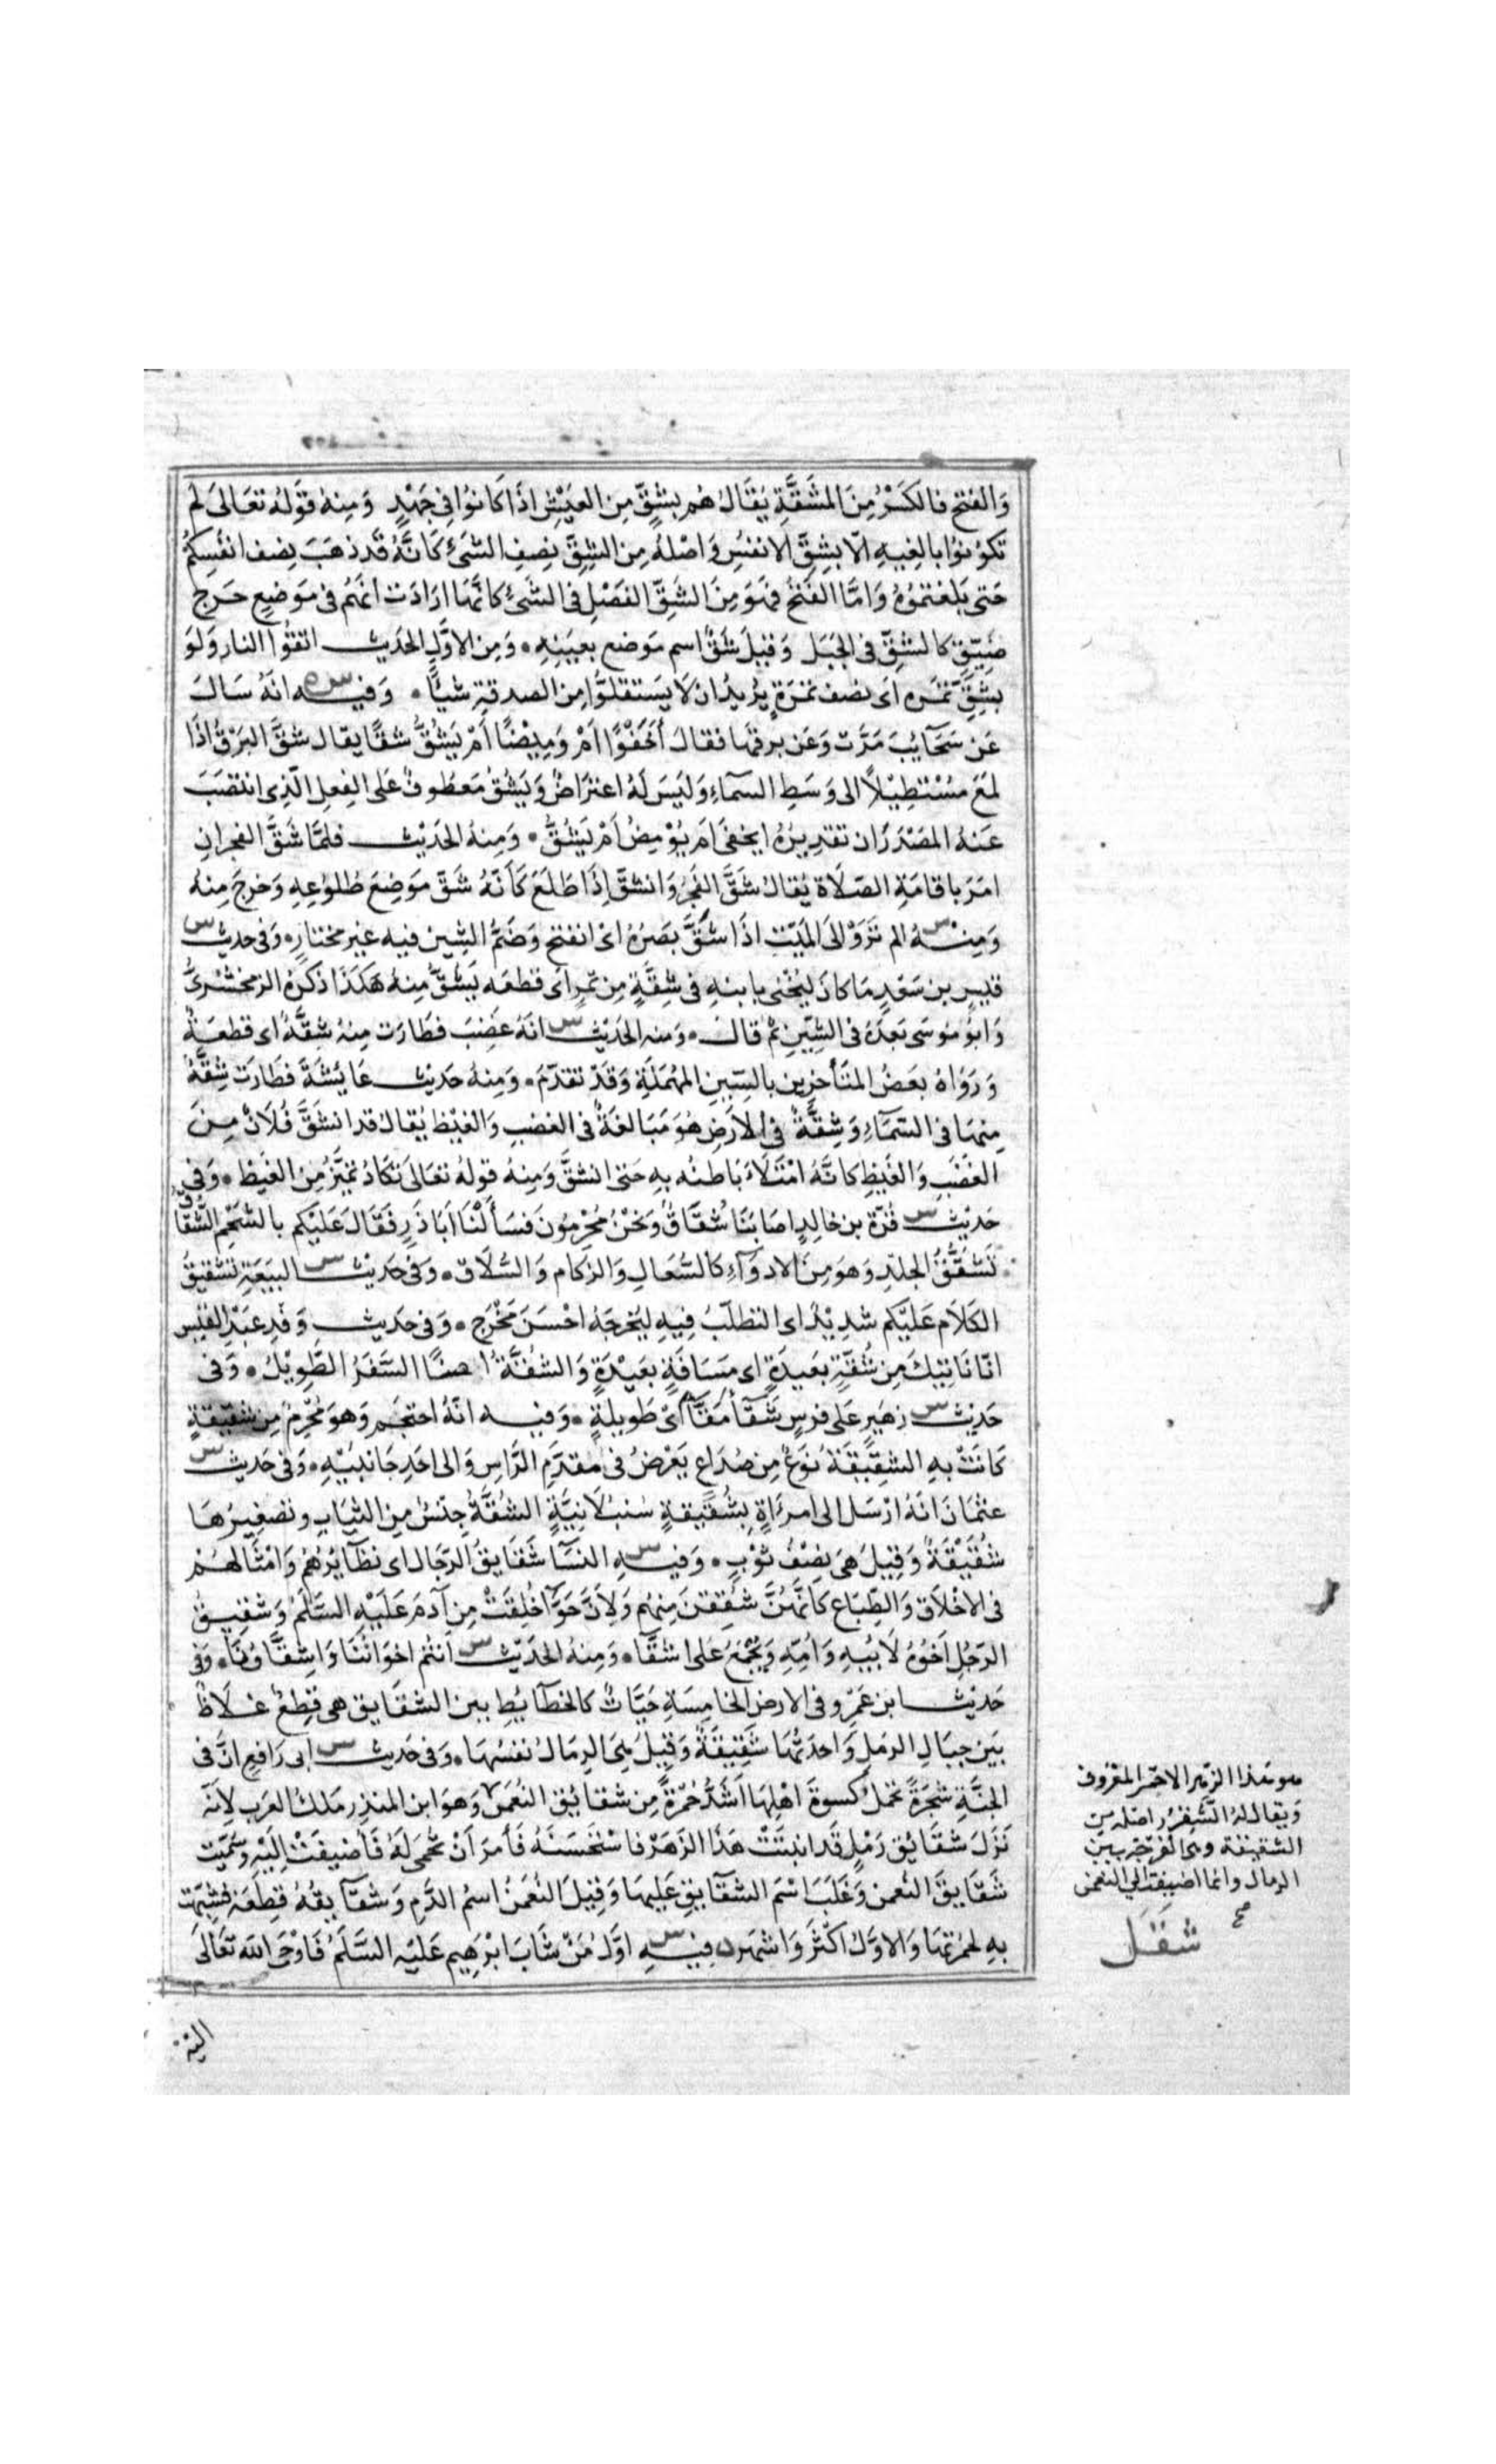 وَالفَتْح فالكَسْرُ مِنَ المَشَقَّةِ يُقَالُ هُم بِشِقٍّ مِن العَيْشِ اذَا كَانوُا فِى جَهْدٍ وَمِنهُ قَولهُ تعَالىَ لم
تكوُنوُا بالِغِيهِ الّا بِشِقِّ الانفسُِ وَاصْلهُ مِن الشِّقِّ نِصفِ الشَّىءِ كَانَّهُ قَدذهَبَ نِصف انفُسِكمُ
حَتى بَلغتموُهُ وَامَّا الفَتحُ فهوَ مِنَ الشَّقِّ الفَصْلِ فى الشَّىءِ كانَّهَا ارَادَت انّهُم فى مَوضعِ حَرَجٍ
ضَيّقٍ كالشَّقِّ فى الجَبَل وَقيلَ شَقٌّ اسم مَوضع بعَينهِ ۰ وَمِن الاوَّلِ الحَديث اتقوُا النار وَلوَ
بشِقِّ تمَره اى نصف تمَرَةٍ يُريدُ ان لا يَستقلوُّا مِن الصدقةِ شيأً ۰ وَفيـــه انهُ سَال
عَن سَحَآئِبَ مَرَّت وَعَن برقهَا فقالَ أخَفْوًا امْ وَمِيضًا أمْ يَشُقُّ شقًّا يقال شقَّ البَرْقُ اذَا
لمَعَ مُسْتطِيْلاً الى وَسَطِ السمآءِ وَليَسَ لهُ اعترَاضٌ وَيَشُقُّ مَعطوُفٌ عَلى الفِعلِ الّذِى انتصَبَ
عَنهُ المَصْدَرَان تقدِيرُهُ ايخفىَ امَ يوُمِضُ امْ يَشُقُّ ۰ وَمِنهُ الحَدِيْث فلمَّا شَقَّ الفجرانِ
امَرَ باقامَةِ الصّلَاة يُقالُ شَقَّ الفَجرُ وَانشقَّ اِذَا طَلَعَ كَأنهُ شَقَّ مَوَضِعَ طُلوُعِهِ وَخرجَ مِنهُ
وَمِنهُ الم ترَوْا الىَ المَيّتِ اذَا شَقَّ بصَرُهُ اىْ انفتح وَضَمُّ الشِين فيه غير مختارٍ ۰ وَفى حديث
قيس بن سَعْدٍ مَا كانَ ليُخْنىِ بابنهِ فى شِقَّةٍ مِن تمرٍ اى قطعَه يَشُقُّ مِنهُ هَكَذَا ذَكرَهُ الزمخشرىُّ
وَابوُ موُسَى بَعدَهُ فى الشِّينِ ثمّ قالَ ۰ وَمنه الحَدِيْث انهُ غَضِبَ فطَارَت مِنهُ شِقَّةٌ اى قطعَةٌ
وَرَوَاهُ بعَضُ المتَأخِرِين بالسِّينِ المُهْمَلَةِ وَقدَ تقدّمَ ۰ وَمِنهُ حَديث عَائِشَةَ فطَارَت شِقَّةٌ
مِنهَا فى السَّمَآءِ وَشِقَّةٌ فى الارَضِ هوُ مَبَالغَةٌ فى الغضبِ وَالغيْظ يُقالُ قد انشَقَّ فُلَانٌ مِنَ
الغَضَبِ وَالغَيْظِ كانَّهُ امْتَلاَءَ بَاطنُه بهِ حَتى انشقَّ وَمِنهُ قولهُ تعَالىَ تكَادُ تميَّزُ مِنَ الغَيظ ۰ وَفى
حَدِيْث قُرّةَ بن خالِدٍ اصَابَنَا شُقاقٌ وَنحَنُ مُحْرِمُونَ فسَألنَا ابَا ذَرٍ فَقَالَ عَليَكم بالشَحْمِ الشُّقَاقُ
تَشَقُّقُ الجلدِ وَهوَ مِنَ الادوآءِ كالسُّعَالِ وَالزكام وَالسُّلَاق ۰ وَفى حَديث البيَعَةِ تشقيقُ
الكَلَام عَليْكم شدِيْدٌ اى التطلّبُ فيهِ ليُخرِجَهُ احْسَنَ مَخْرَج ۰ وَفى حَديث وَفدِ عَبْدِ القيَس
انّا نَاتِيكَ مِن شُقّةٍ بعَيدَةٍ اى مَسَافَةٍ بعَيْدَةٍ وَالشُقَّةُ ايضًا السَّفَرُ الطَّوِيْلُ ۰ وَفى
حَديث زهَيرٍ عَلى فرسٍ شَقّآءَ مَقّآءَ اىْ طَويلةٍ ۰ وَفيه انّهُ احتجَم وَهوَ مُحْرِمٌ مِن شقيقةٍ
كَانتْ بهِ الشقِيقَةُ نوَعٌ مِن صُدَاعٍ يَعْرضُ فى مقدَّمِ الرَّاسِ وَالى احَدِ جَانبَيْهِ ۰ وَفى حَديث
عثمَانَ انَهُ ارْسَل الى امرَاةٍ بِشُقَيقةٍ سُنبُلَانِيَّةٍ الشُقَّةُ جنسٌ مِن الثيَاب وتصغيرُهَا
شُقَيْقَةٌ وَقيلَ هىَ نِصْفُ ثوْبٍ ۰ وَفيــهِ النسَآ شَقَايقُ الرّجَال اى نظَآيُرهُم وَامْثَالهُـم
فى الاخْلَاق وَالطِبَاع كَانَّهنَّ شُقِقنَ مِنهُم وَلِانَّ حَوّآ خُلِقَتْ مِن آدمَ عَلَيْهِ السَّلَمُ وَشقيقُ
الرّجُلِ اَخوُهُ لاَبيْهِ وَامُّهِ وَيُجْمَعُ عَلى اشقّآ ۰ وَمِنهُ الحَدِيْث اَنتم اخوَانُنَا وَاشِقَّاوُنَا ۰ وَفى
حَديث ابن عَمْرٍو فى الارض الخامِسَةِ حَيَّاتٌ كالخطَآيُطِ بين الشقَايق هى قِطَعٌ غــلَاظٌ
بيَن جبَالِ الرمَلِ وَاحدَتُهَا شَقِيقَةٌ وَقيلَ هِىَ الرمَالُ نفسُهَا ۰ وَفى حَديث ابى رَافعٍ انَّ فى
الجنَّةِ شجَرَةً تحملُ كُسوةَ اهْلهَا اَشَدُّ حُمْرَةً مِن شقايُق النعُمَن وَهوَ ابن المنذِر مَلكُ العَرب لِانّه
نَزَلَ شقَايُق رَمْلٍ قدَ انبتَتْ هَذَا الزَهَرْ فاسْتحْسَنهُ فَأمرَ اَنْ تحْمى لهُ فَاُضيفَتْ اِليْهِ وَسُمّيَت
شَقَايقَ النعمن وَغلَبَ اسْم الشقَآيقِ عَليهَا وَقيلَ النعُمَنُ اسمُ الدَّمِ وَشقَآيقهُ قِطَعُهُ فشبِّهَت
بهِ لحُمرَتهَا وَالاوَّلُ اكْثَرُ وَاشهَر فيــهِ اوّلُ مَنْ شَابَ ابرْهيم عَليَه السَّلَمُ فَاوْحَى الله تعَالىَ
هو هذا الزهر الاحمَر المعَروف
وَيقال لهُ الشَّقِرُ اصله من
الشقيقة وهى الفرَجَة بين
الرمال وانما اضيفت الى النعمن
صح
شَقَـل
اليه